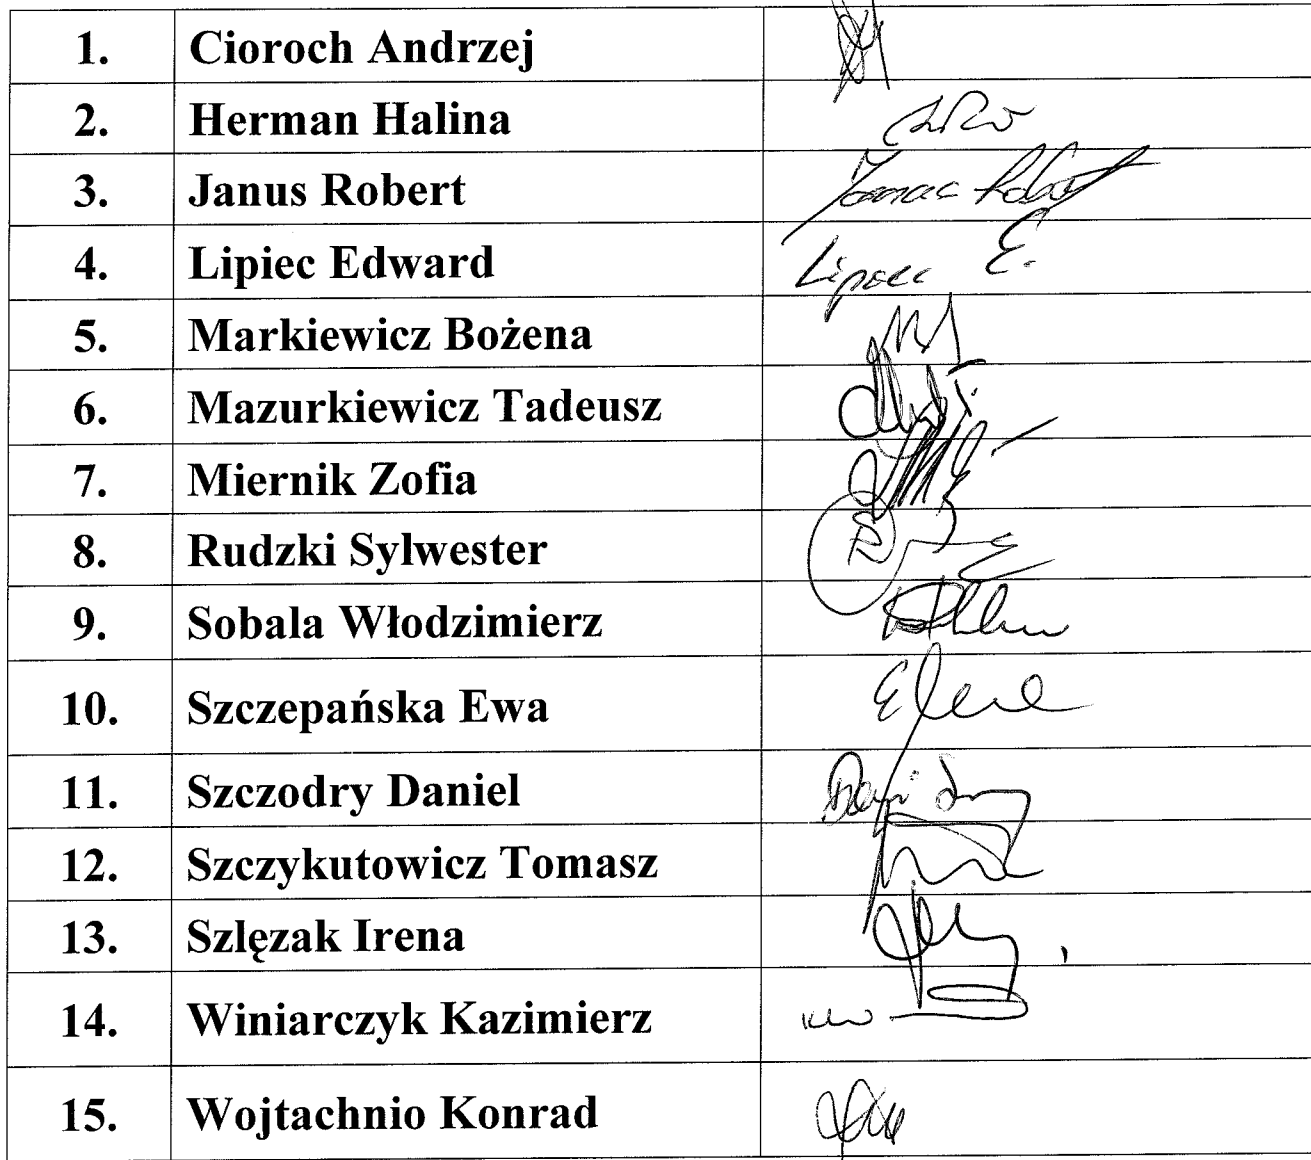 1. Cioroch Andrzej
2. Herman Halina
3. Janus Robert
4. Lipiec Edward Lipiec E.
5. Markiewicz Bożena
6. Mazurkiewicz Tadeusz
7. Miernik Zofia
8. Rudzki Sylwester
9. Sobala Włodzimierz
10. Szczepańska Ewa
11. Szczodry Daniel
12. Szczykutowicz Tomasz
13. Szlęzak Irena
14. Winiarczyk Kazimierz
15. Wojtachnio Konrad